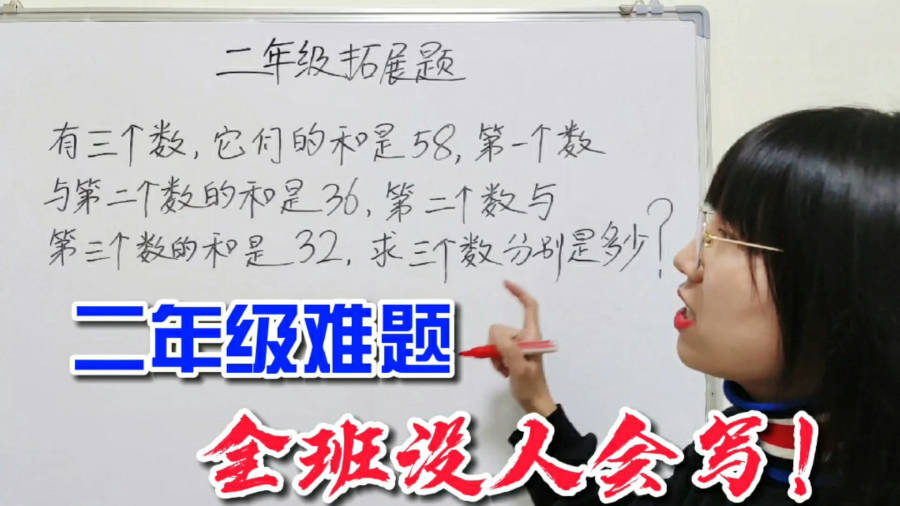 二年级拓展题
有三个数,它们的和是58,第一个数
与第二个数的和是36,第二个数与
第三个数的和是32,求三个数分别是多少?
二年级难题
全班没人会写!